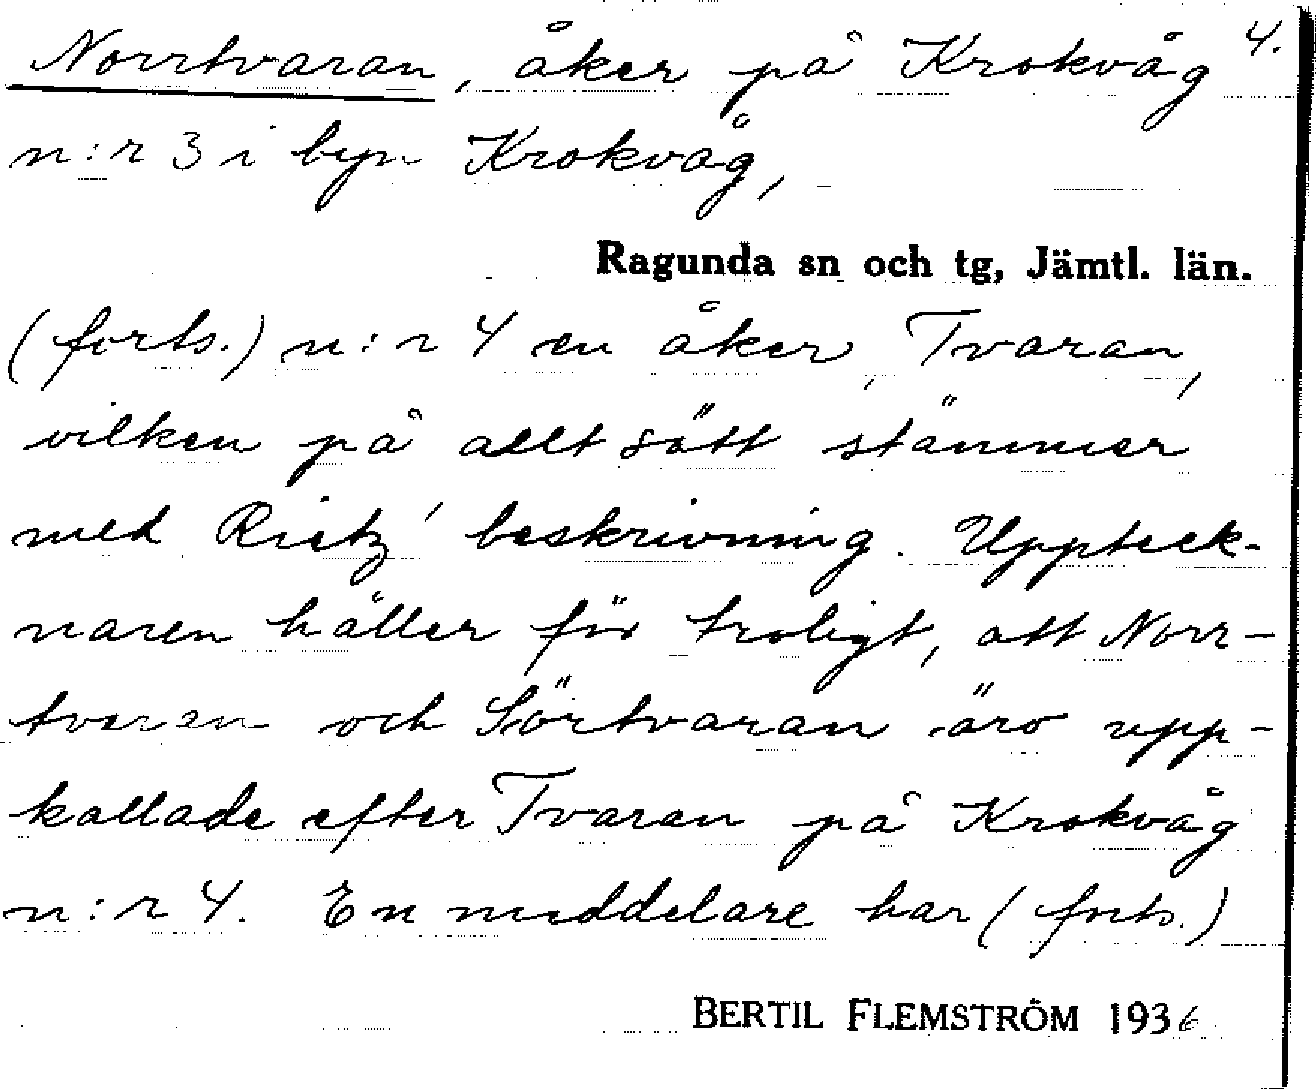 Norrtvaran, åker på Krokvåg 4.
n:r 3 i byn Krokvåg,
Ragunda sn och tg, Jämtl. län.
(forts.) n:r 4 en åker, Tvaran,
vilken på allt sätt stämmer
med Rietz' beskrivning. Uppteck-
naren håller för troligt, att Norr-
tvaran och Sörtvaran äro upp-
kallade efter Tvaran på Krokvåg
n:r 4. En meddelare har (forts.)
BERTIL FLEMSTRÖM 1936